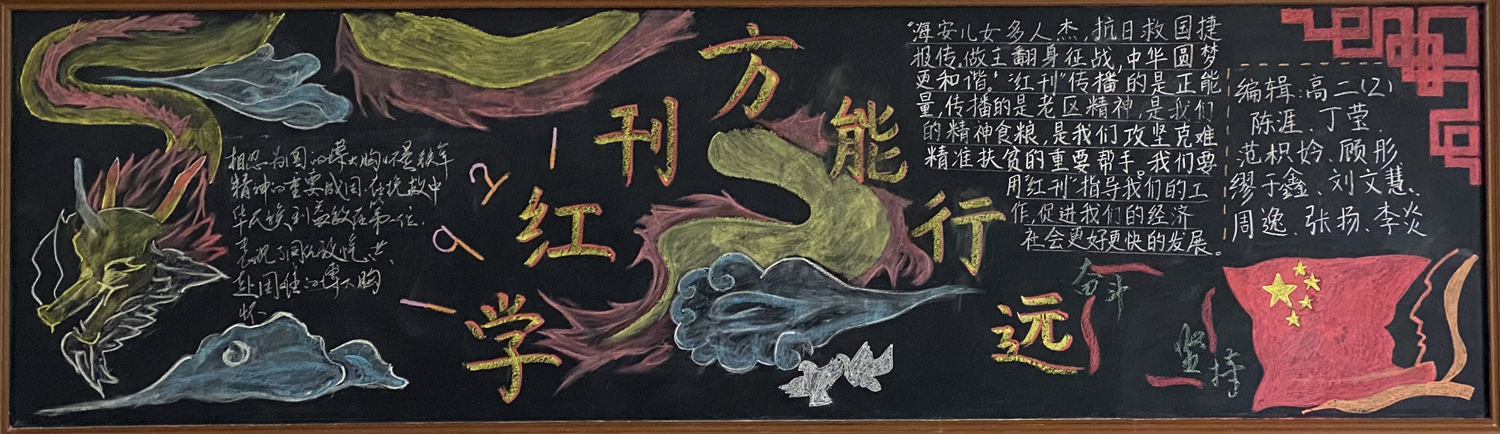 学红刊方能行远
1921
相忍为国的博大胸怀是铁军
精神的重要成因,在抗敌中
华民族利益放在第一位.
赴国难的博大胸
怀
"海安儿女多人杰,抗日救国捷
报传。做主翻身征战,中华圆梦
更和谐。""红刊"传播的是正能
量,传播的是老区精神,是我们
的精神食粮,是我们攻坚克难
精准扶贫的重要帮手。我们要
用"红刊"指导我们的工
作,促进我们的经济
社会更好更快的发展。
编辑:高二(2)
陈涯、丁莹、
范枳妗、顾彤、
缪于鑫、刘文慧、
周逸、张扬、李炎
奋斗
坚持